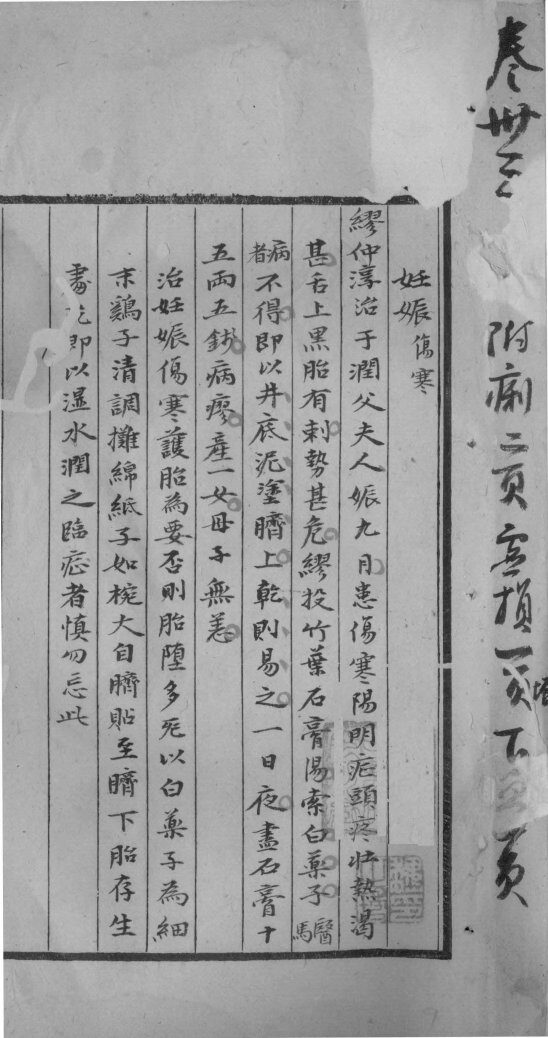 卷卅三 附痢二頁虛損一頁下
妊娠傷寒
繆仲淳治于潤父夫人娠九月患傷寒陽明症頭疼壯熱渴
甚舌上黑胎有刺勢甚危繆投竹葉石膏湯索白藥子醫馬
病者不得即以井底泥塗臍上乾則易之一日夜盡石膏十
五兩五錢病瘳產一女母子無恙
治妊娠傷寒護胎為要否則胎墮多死以白藥子為細
末鷄子清調攤綿紙子如椀大自臍貼至臍下胎存生
處乾即以溫水潤之臨症者慎勿忘此